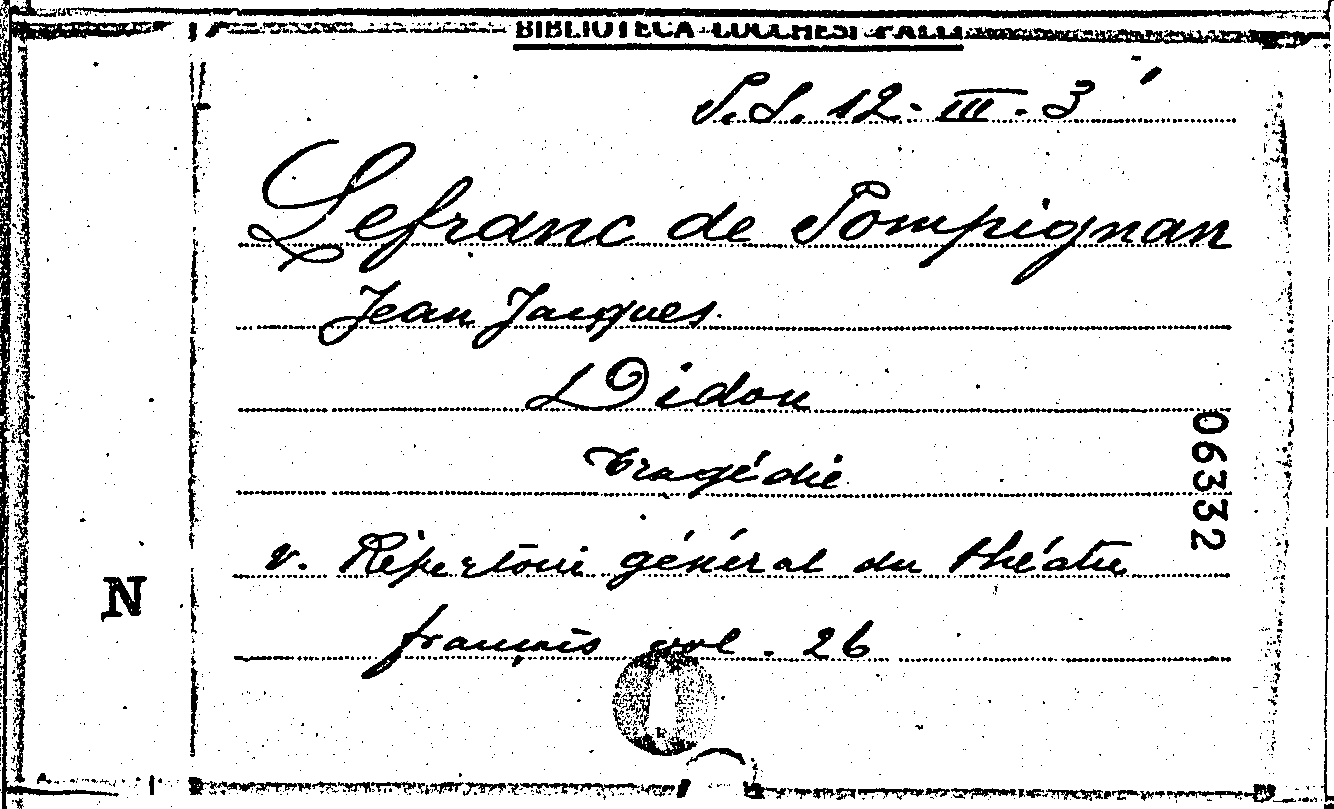 BIBLIOTECA LUCCHESI PALLI
P.S. 12-III-3
Lefranc de Pompignan
Jean Jacques.
Didon
tragédie
v. Répertoire général du théatre
français vol. 26
06332
N